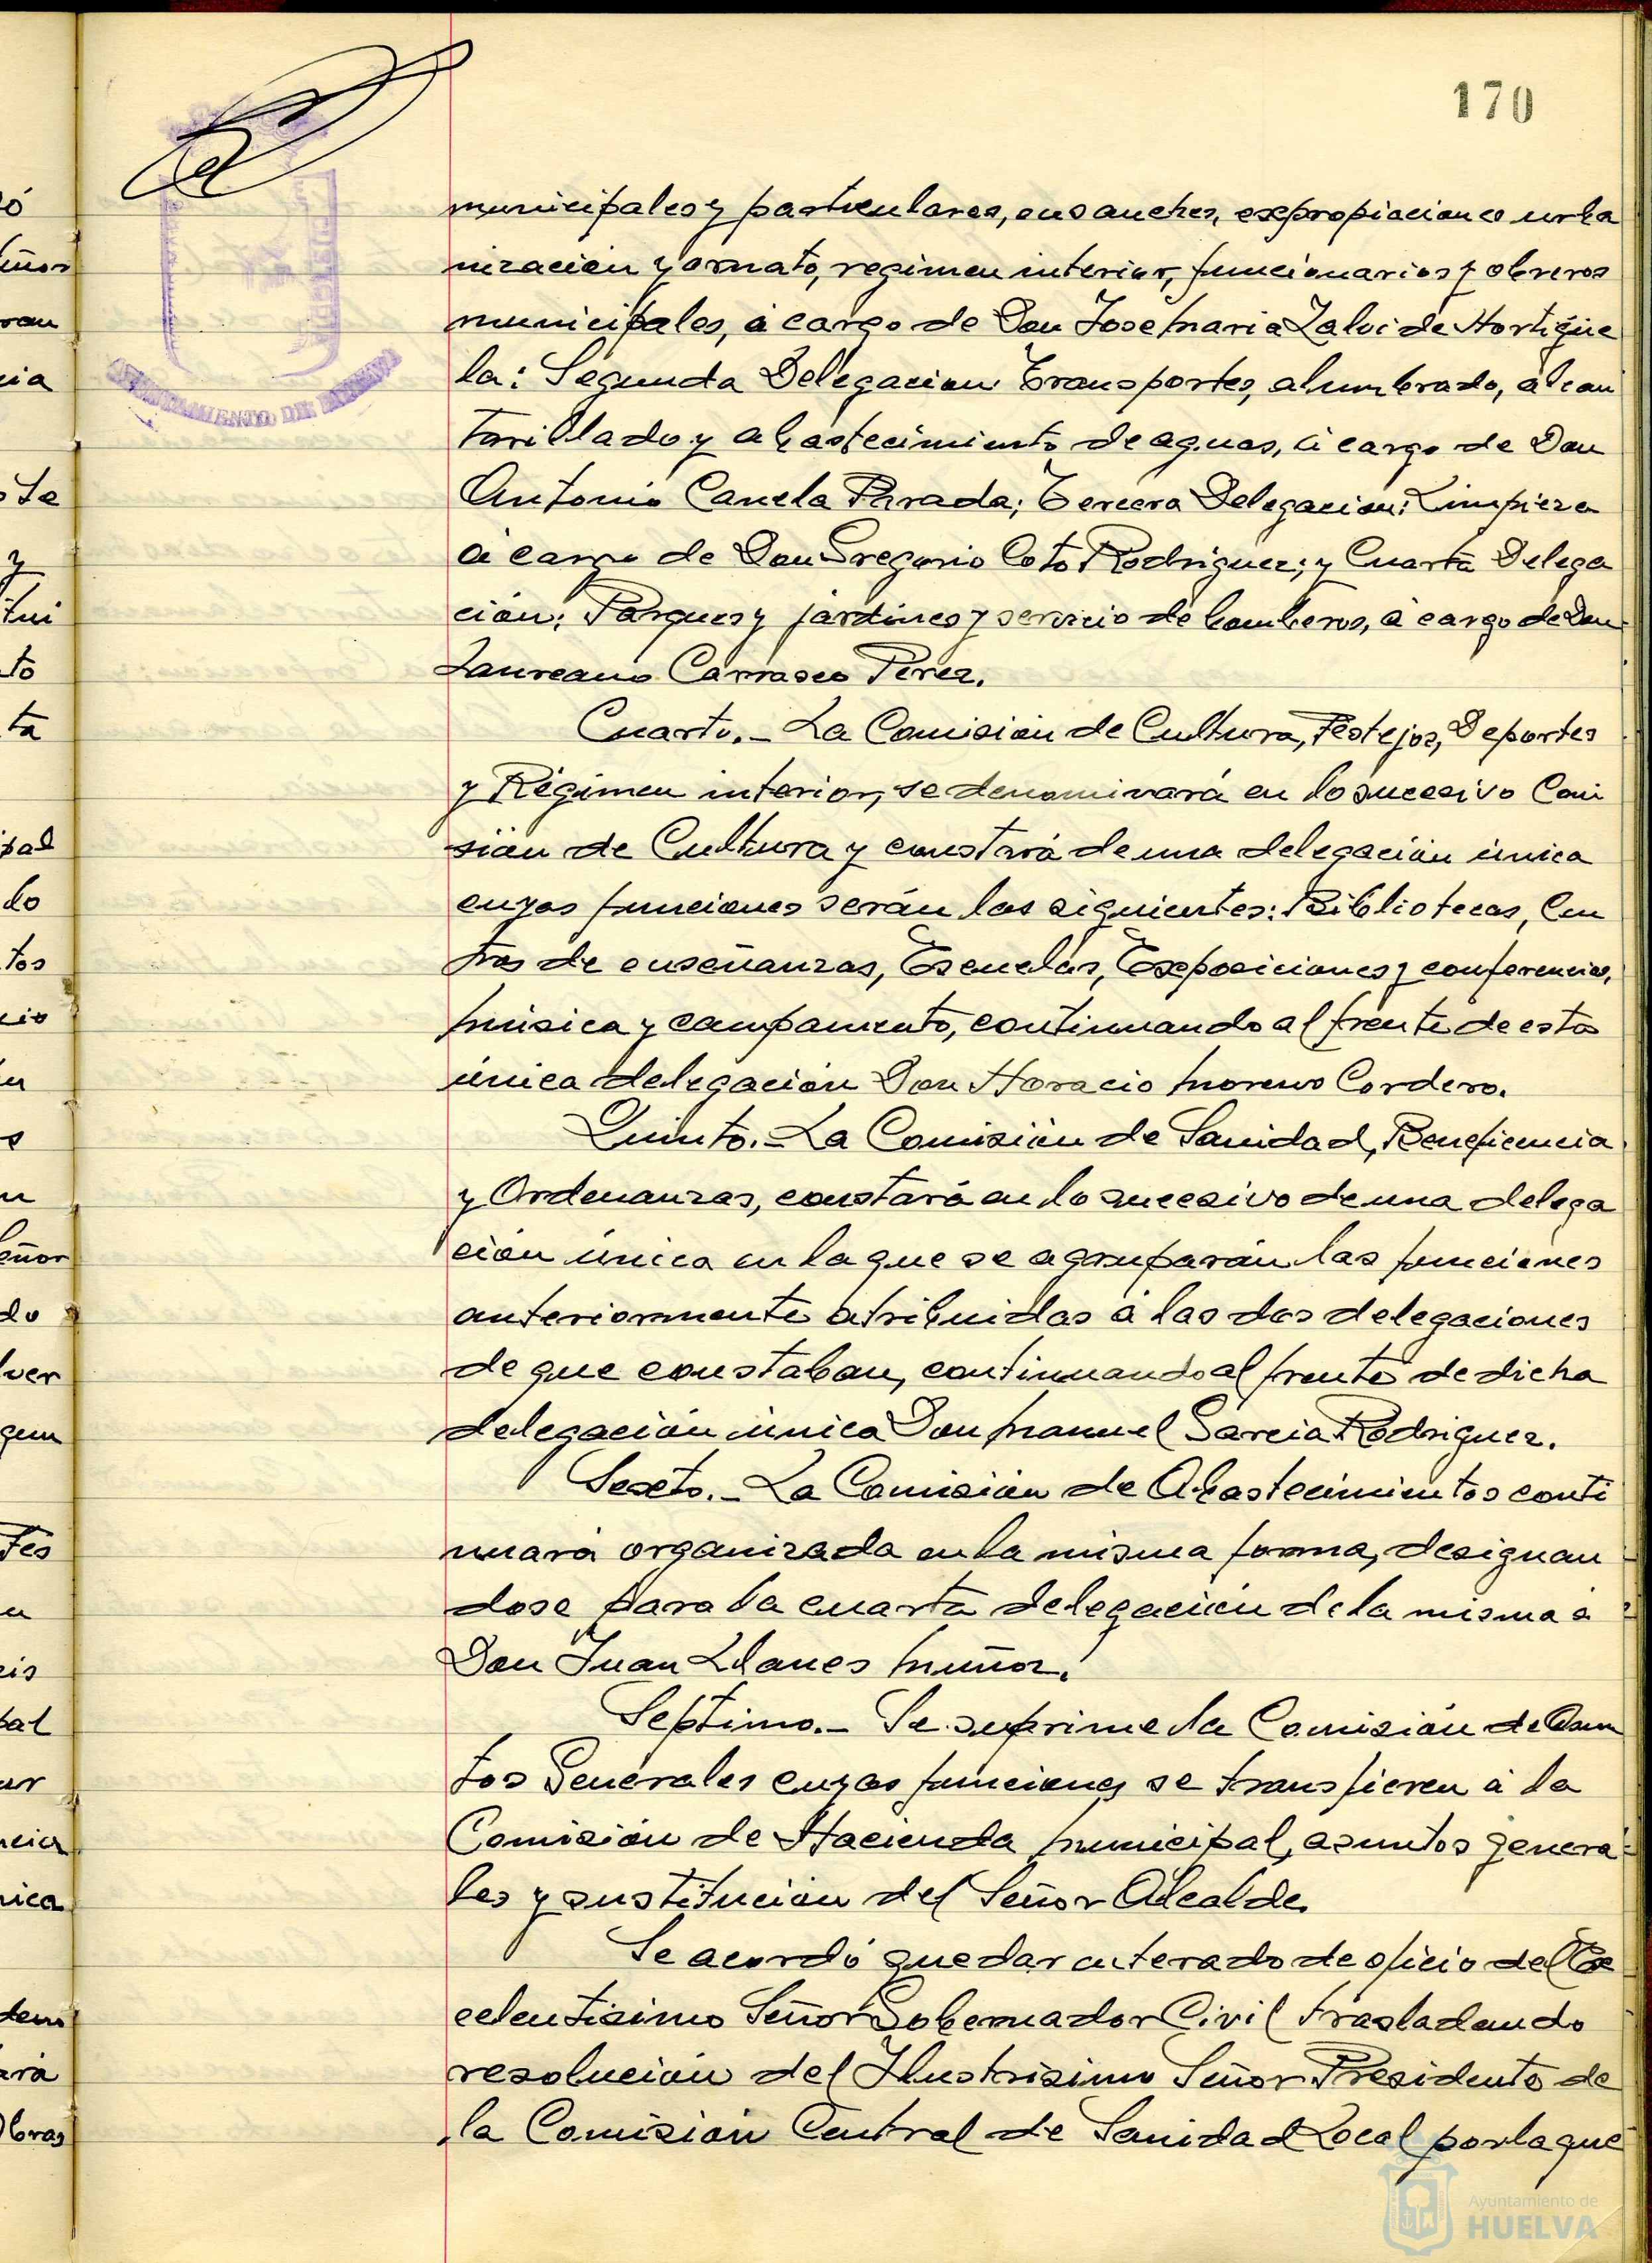 170
municipales y particulares, ensanches, expropiaciones urba
nizacion y ornato, regimen interior, funcionarios y obreros
municipales, á cargo de Don Jose Maria Zalvide Hortigüe
la: Segunda Delegacion Transportes, alumbrado, alcan
tarillado y abastecimiento de aguas, á cargo de Don
Antonio Canela Parada; Tercera Delegacion: Limpieza
á cargo de Don Gregorio Coto Rodriguez; y Cuarta Delega
ción; Parques y jardines y servicio de bomberos, á cargo de Don
Laureano Carrasco Perez.
Cuarto.- La Comision de Cultura, Festejos, Deportes
y Régimen interior, se denominará en lo sucesivo Comi
sión de Cultura y constará de una delegación única
cuyas funciones serán las siguientes: Bibliotecas, Cen
tros de enseñanzas, Escuelas, Exposiciones y conferencias,
música y campamento, continuando al frente de esta
única delegación Don Horacio Moreno Cordero.
Quinto.- La Comisión de Sanidad, Beneficencia
y Ordenanzas, constará en lo sucesivo de una delega
ción única en la que se agruparán las funciones
anteriormente atribuidas á las dos delegaciones
de que constaban, continuando al frente de dicha
delegación única Don Manuel Garcia Rodriguez.
Sexto.- La Comisión de Abastecimientos conti
nuará organizada en la misma forma, designan
dose para la cuarta delegación de la misma á
Don Juan Llanes Muñoz.
Septimo.- Se suprime la Comisión de Asun
tos Generales cuyas funciones se transfieren á la
Comisión de Hacienda municipal, asuntos genera
les y sustitución del Señor Alcalde.
Se acordó quedar enterado de oficio del Ex
celentisimo Señor Gobernador Civil trasladando
resolución del Ilustrisimo Señor Presidente de
la Comisión Central de Sanidad Local por la que
Ayuntamiento de
HUELVA